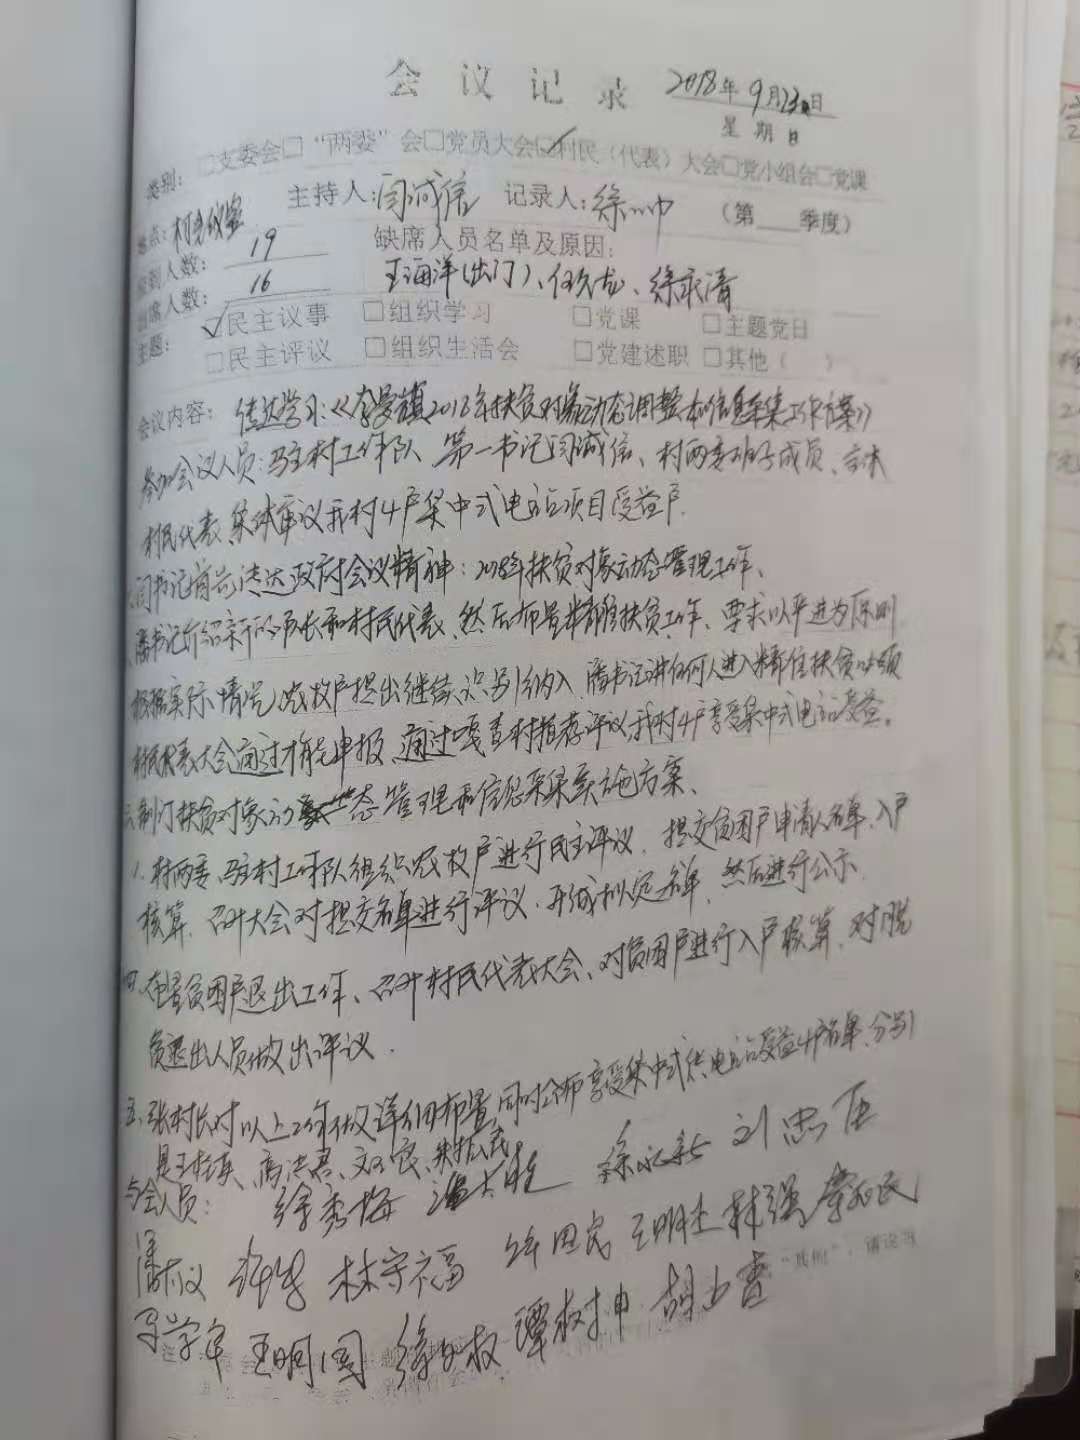 会 议 记 录 2018年9月23日
星期日
类别: □支委会□"两委"会□党员大会☑村民(代表)大会□党小组会□党课
主持人:闫诚信 记录人:徐 (第 季度)
地点:村会议室
应到人数: 19 缺席人员名单及原因:
出席人数: 16 王海洋(出门)、任久龙、徐永清
主题: ☑民主议事 □组织学习 □党课 □主题党日
□民主评议 □组织生活会 □党建述职 □其他( )
会议内容: 传达学习:《 镇2018年扶贫对象动态调整和信息采集工作方案》
参加会议人员:驻村工作队、第一书记闫诚信、村两委班子成员、全体
村民代表,集体审议我村4户集中式电站项目受益户.
闫书记首先传达政府会议精神:2018年扶贫对象动态管理工作、
潘书记介绍新的 村长和村民代表、然后布置精准扶贫工作、要求以严进为原则
根据实际情况,农牧户提出继续识别纳入,潘书记讲任何人进入精准扶贫必须
村民代表大会通过才能申报,通过嘎查村推荐评议,我村4户享受集中式电站受益。
三、制订扶贫对象动态管理和信息采集实施方案、
1、村两委、驻村工作队组织农牧户进行民主评议、提交贫困户申请人名单、入户
核算、召开大会对提交名单进行评议、形成拟定名单、然后进行公示.
四、布置贫困户退出工作、召开村民代表大会、对贫困户进行入户核算、对脱
贫退出人员做出评议.
五、张村长对以上工作做详细布置,同时公布享受集中式供电站受益4户名单,分别
是王桂英、高洪君、
与会人员: 徐秀梅 徐永新 刘忠臣
潘 议 林守福 田 王明 林强 民
王明国 徐 权 谭树坤 胡